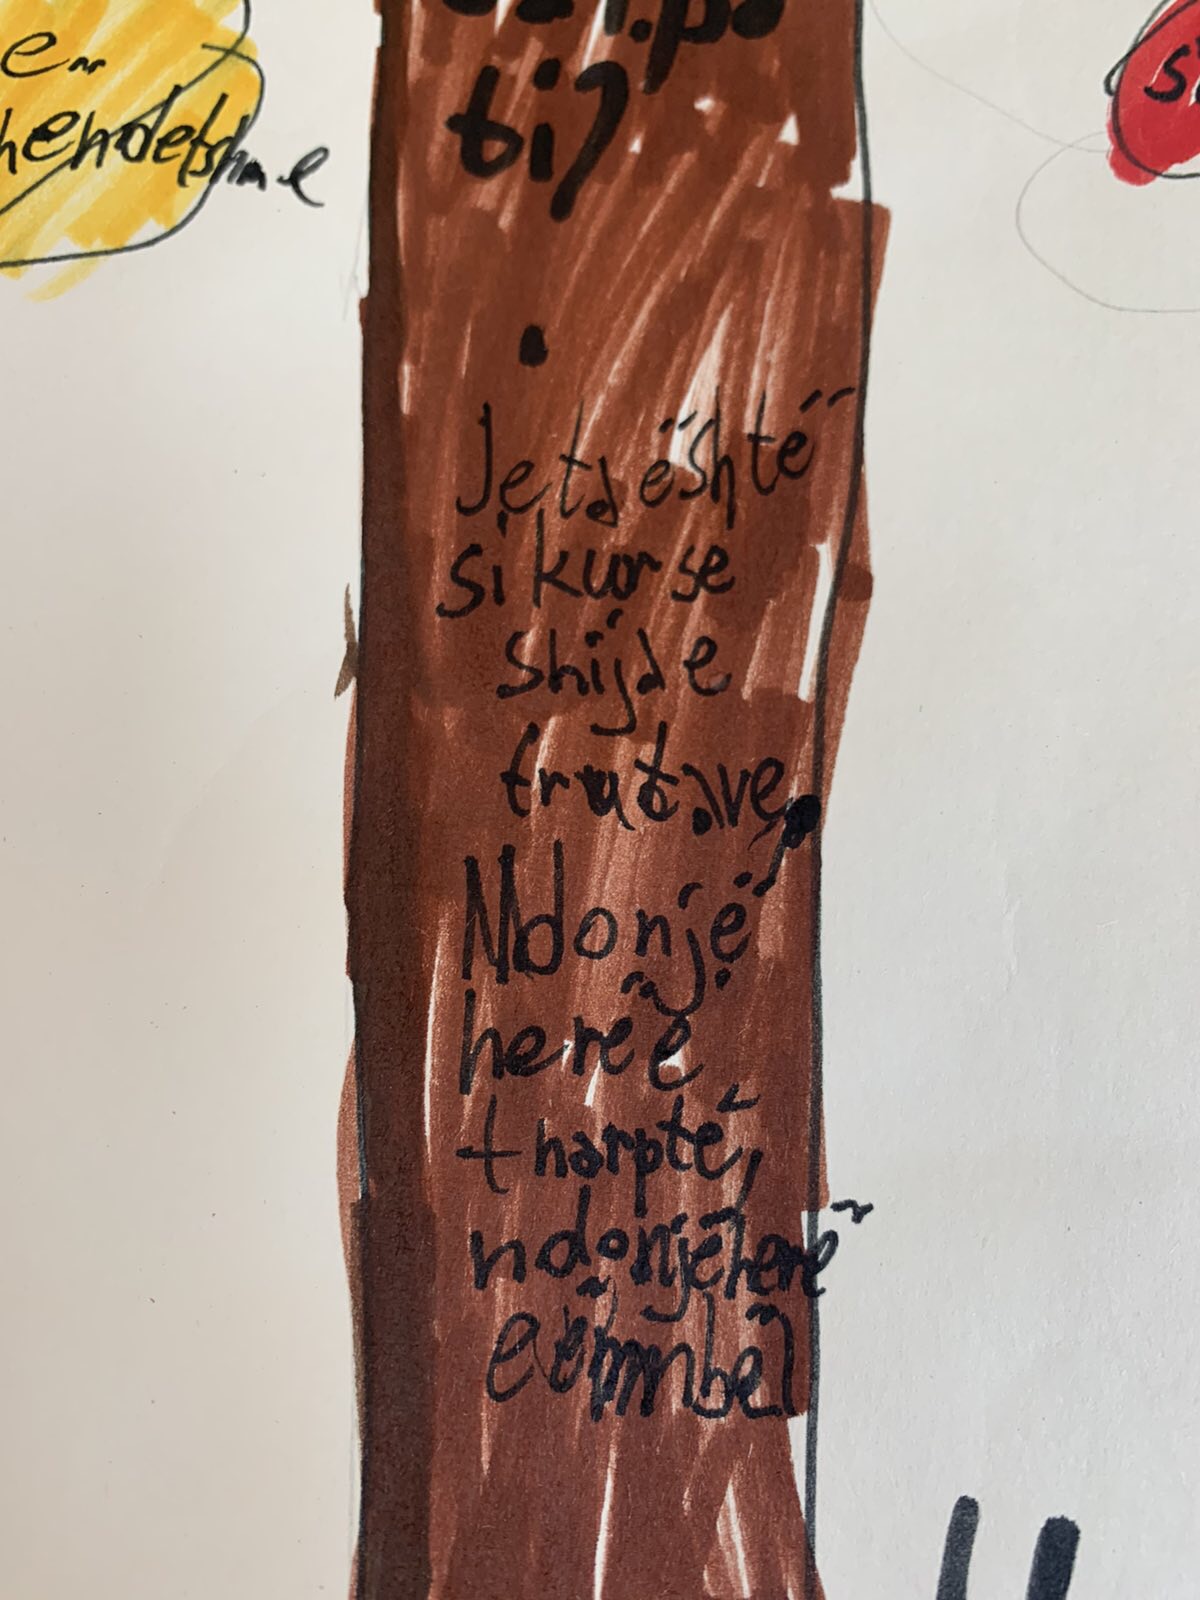 e..
hendetshme
ti)
Jeta është
si kurse
shije
frutave,
Ndonjë
herë e
tharptë,
ndonjëherë
e ëmbël